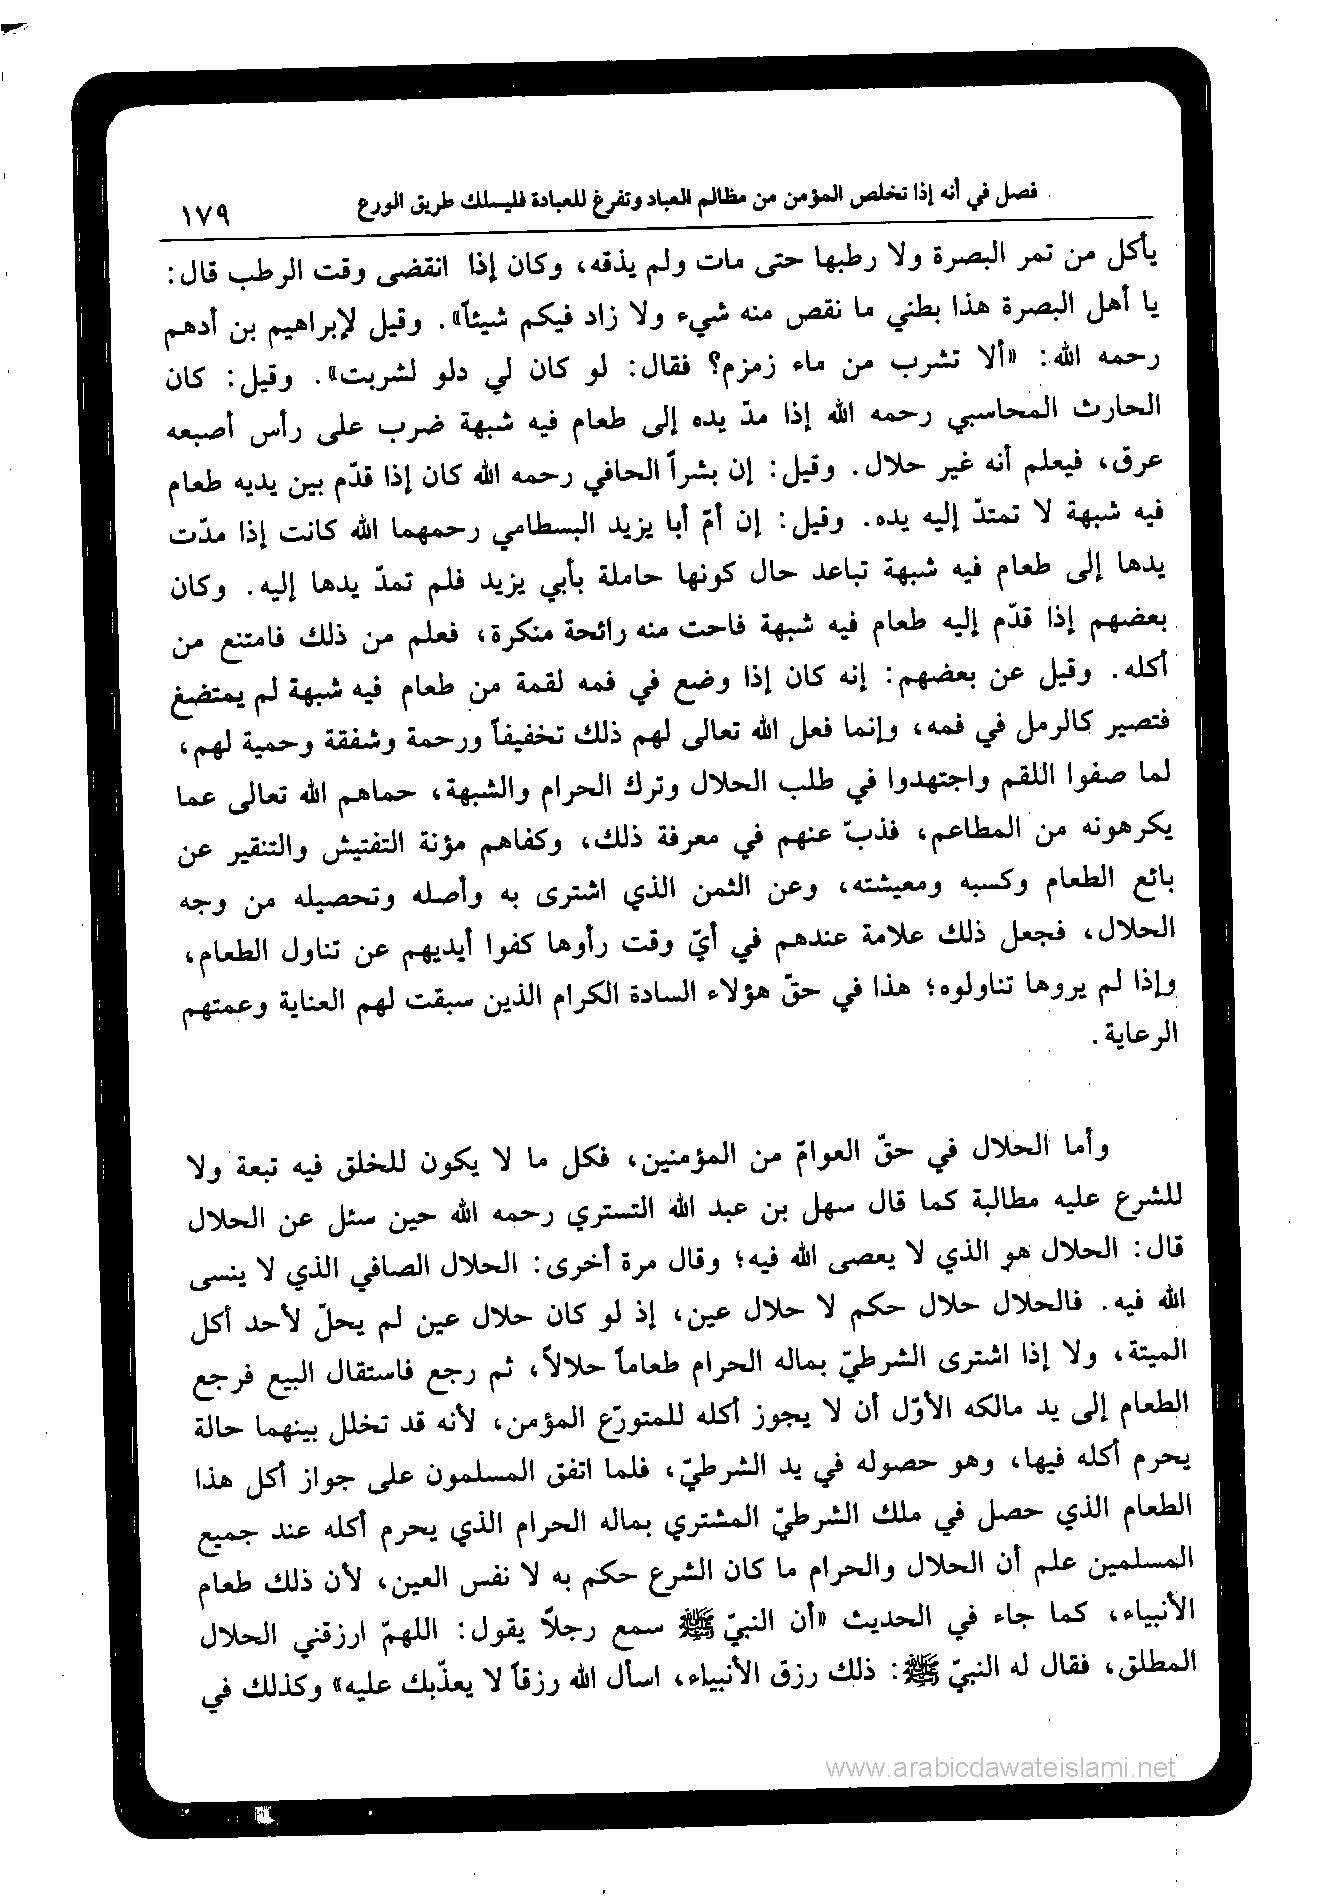 فصل في أنه إذا تخلص المؤمن من مظالم العباد وتفرغ للعبادة فليسلك طريق الورع ١٧٩
يأكل من تمر البصرة ولا رطبها حتى مات ولم يذقه، وكان إذا انقضى وقت الرطب قال:
يا أهل البصرة هذا بطني ما نقص منه شيء ولا زاد فيكم شيئاً». وقيل لإبراهيم بن أدهم
رحمه الله: «ألا تشرب من ماء زمزم؟ فقال: لو كان لي دلو لشربت». وقيل: كان
الحارث المحاسبي رحمه الله إذا مدّ يده إلى طعام فيه شبهة ضرب على رأس أصبعه
عرق، فيعلم أنه غير حلال. وقيل: إن بشراً الحافي رحمه الله كان إذا قدّم بين يديه طعام
فيه شبهة لا تمتدّ إليه يده. وقيل: إن أمّ أبا يزيد البسطامي رحمهما الله كانت إذا مدّت
يدها إلى طعام فيه شبهة تباعد حال كونها حاملة بأبي يزيد فلم تمدّ يدها إليه. وكان
بعضهم إذا قدّم إليه طعام فيه شبهة فاحت منه رائحة منكرة، فعلم من ذلك فامتنع من
أكله. وقيل عن بعضهم: إنه كان إذا وضع في فمه لقمة من طعام فيه شبهة لم يمتضغ
فتصير كالرمل في فمه، وإنما فعل الله تعالى لهم ذلك تخفيفاً ورحمة وشفقة وحمية لهم،
لما صفوا اللقم واجتهدوا في طلب الحلال وترك الحرام والشبهة، حماهم الله تعالى عما
يكرهونه من المطاعم، فذبّ عنهم في معرفة ذلك، وكفاهم مؤنة التفتيش والتنقير عن
بائع الطعام وكسبه ومعيشته، وعن الثمن الذي اشترى به وأصله وتحصيله من وجه
الحلال، فجعل ذلك علامة عندهم في أيّ وقت رأوها كفوا أيديهم عن تناول الطعام،
وإذا لم يروها تناولوه؛ هذا في حقّ هؤلاء السادة الكرام الذين سبقت لهم العناية وعمتهم
الرعاية.
وأما الحلال في حقّ العوامّ من المؤمنين، فكل ما لا يكون للخلق فيه تبعة ولا
للشرع عليه مطالبة كما قال سهل بن عبد الله التستري رحمه الله حين سئل عن الحلال
قال: الحلال هو الذي لا يعصى الله فيه؛ وقال مرة أخرى: الحلال الصافي الذي لا ينسى
الله فيه. فالحلال حلال حكم لا حلال عين، إذ لو كان حلال عين لم يحلّ لأحد أكل
الميتة، ولا إذا اشترى الشرطيّ بماله الحرام طعاماً حلالاً، ثم رجع فاستقال البيع فرجع
الطعام إلى يد مالكه الأوّل أن لا يجوز أكله للمتورّع المؤمن، لأنه قد تخلل بينهما حالة
يحرم أكله فيها، وهو حصوله في يد الشرطيّ، فلما اتفق المسلمون على جواز أكل هذا
الطعام الذي حصل في ملك الشرطيّ المشتري بماله الحرام الذي يحرم أكله عند جميع
المسلمين علم أن الحلال والحرام ما كان الشرع حكم به لا نفس العين، لأن ذلك طعام
الأنبياء، كما جاء في الحديث «أن النبيّ ﷺ سمع رجلاً يقول: اللهمّ ارزقني الحلال
المطلق، فقال له النبيّ ﷺ: ذلك رزق الأنبياء، اسأل الله رزقاً لا يعذّبك عليه» وكذلك في
www.arabicdawateislami.net